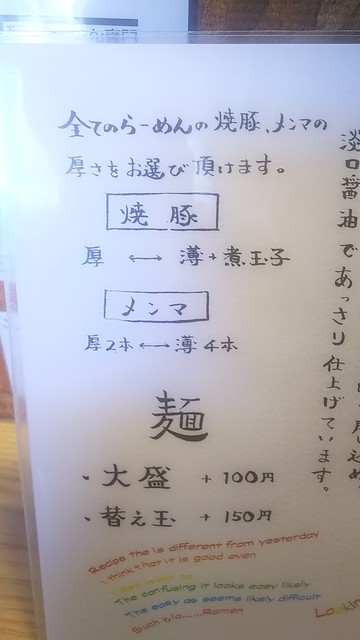 全てのらーめんの焼豚、メンマの
厚さをお選び頂けます。
焼豚
厚 ⟷ 薄+煮玉子
メンマ
厚2本⟷薄4本
麺
・大盛 +100円
・替え玉 +150円
淡口醤油であっさり仕上げています。
Recipe the is different from yesterday
I think that it is good even
The confusing it looks easy likely
The easy as seems likely difficult
Such bla......Ramen